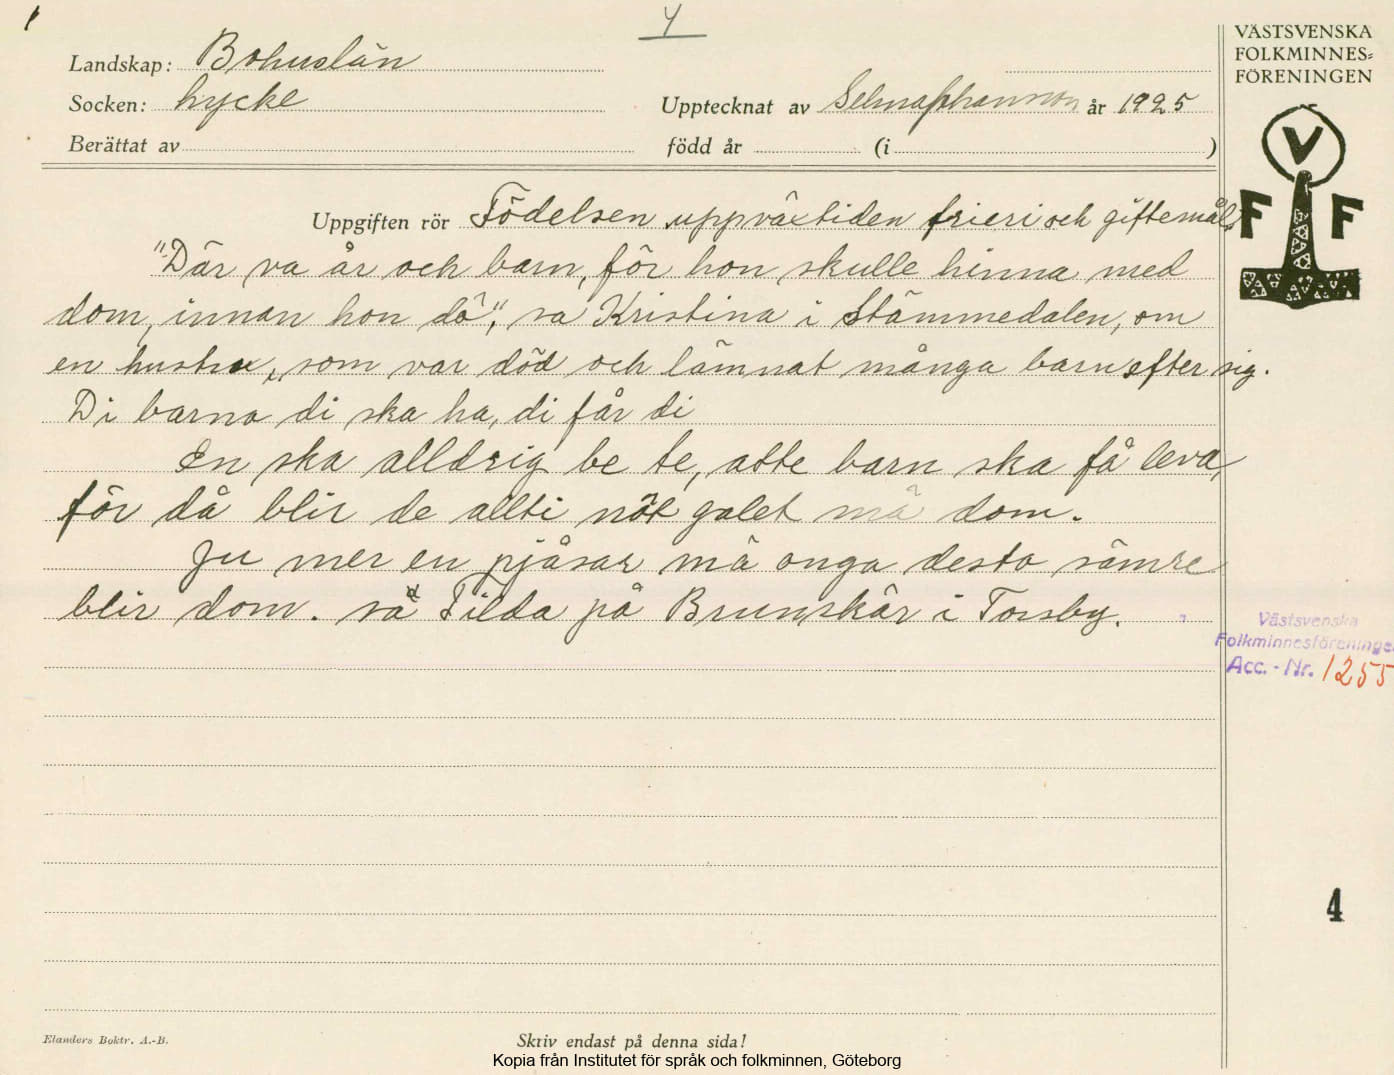 4
VÄSTSVENSKA
FOLKMINNES-
FÖRENINGEN
Landskap: Bohuslän
Socken: Lycke
Upptecknat av Selma Johansson år 1925
Berättat av
född år (i )
V
F F
Uppgiften rör Födelsen uppväxtiden frieri och giftemål.
"Där va år och barn, för hon skulle hinna med
dom, innan hon dö", sa Kristina i Stämmedalen, om
en hustru, som var död och lämnat många barn efter sig.
Di barna di ska ha, di får di
En ska alldrig be te, atte barn ska få leva,
för då blir de allti nôt galet mä dom.
Ju mer en pjåsar mä onga desto sämre
blir dom. sad Tilda på Brunskär i Torsby.
Västsvenska
Folkminnesföreningen
Acc.-Nr. 1255
4
Elanders Boktr. A.-B.
Skriv endast på denna sida!
Kopia från Institutet för språk och folkminnen, Göteborg